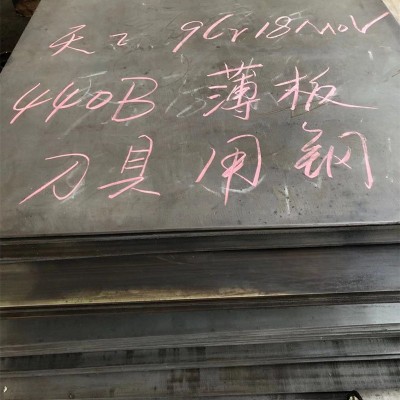 天工 9Cr18MoV
440B 薄板
刀具用钢